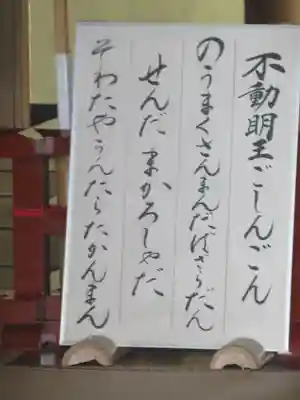 不動明王ごしんごん
のうまくさんまんだばざらだん
せんだ まかろしゃだ
そわたやうんたらたかんまん